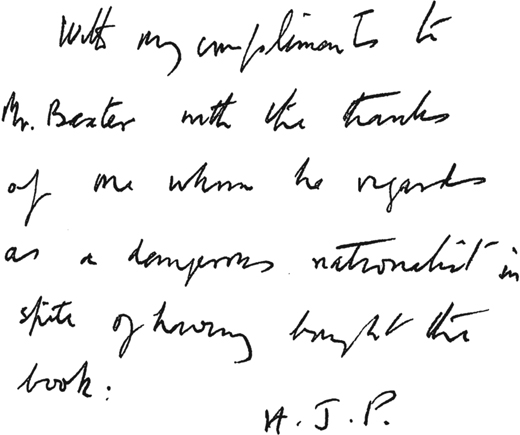 With my compliments to
Mr. Baxter with the thanks
of one whom he regards
as a dangerous nationalist in
spite of having bought this
book.
H. J. P.